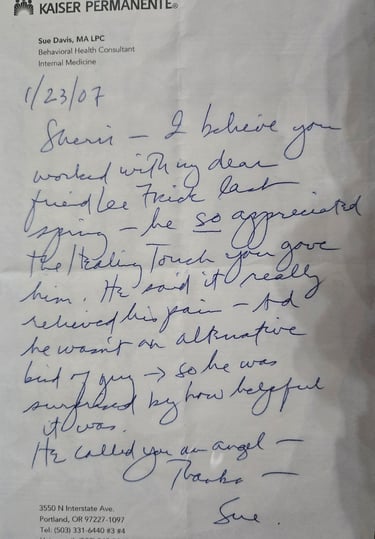 KAISER PERMANENTE®
Sue Davis, MA LPC
Behavioral Health Consultant
Internal Medicine
1/23/07
Sherri – I believe you
worked with my dear
friend Lee Frick last
spring – he so appreciated
the Healing Touch you gave
him. He said it really
relieved his pain – And
he wasn't an alternative
kind of guy → so he was
surprised by how helpful
it was.
He called you an angel –
Thanks –
Sue.
3550 N Interstate Ave.
Portland, OR 97227-1097
Tel: (503) 331-6440 #3 #4